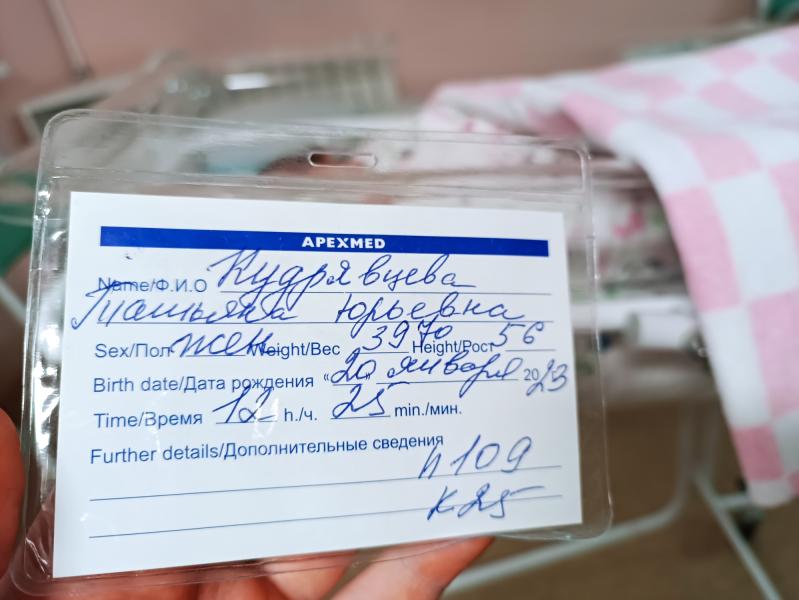 APEXMED
Name/Ф.И.О Кудрявцева
Татьяна Юрьевна
Sex/Пол жен Weight/Вес 3970 Height/Рост 56
Birth date/Дата рождения «20» января 2023
Time/Время 12 h./ч. 25 min./мин.
Further details/Дополнительные сведения
п 109
к 25